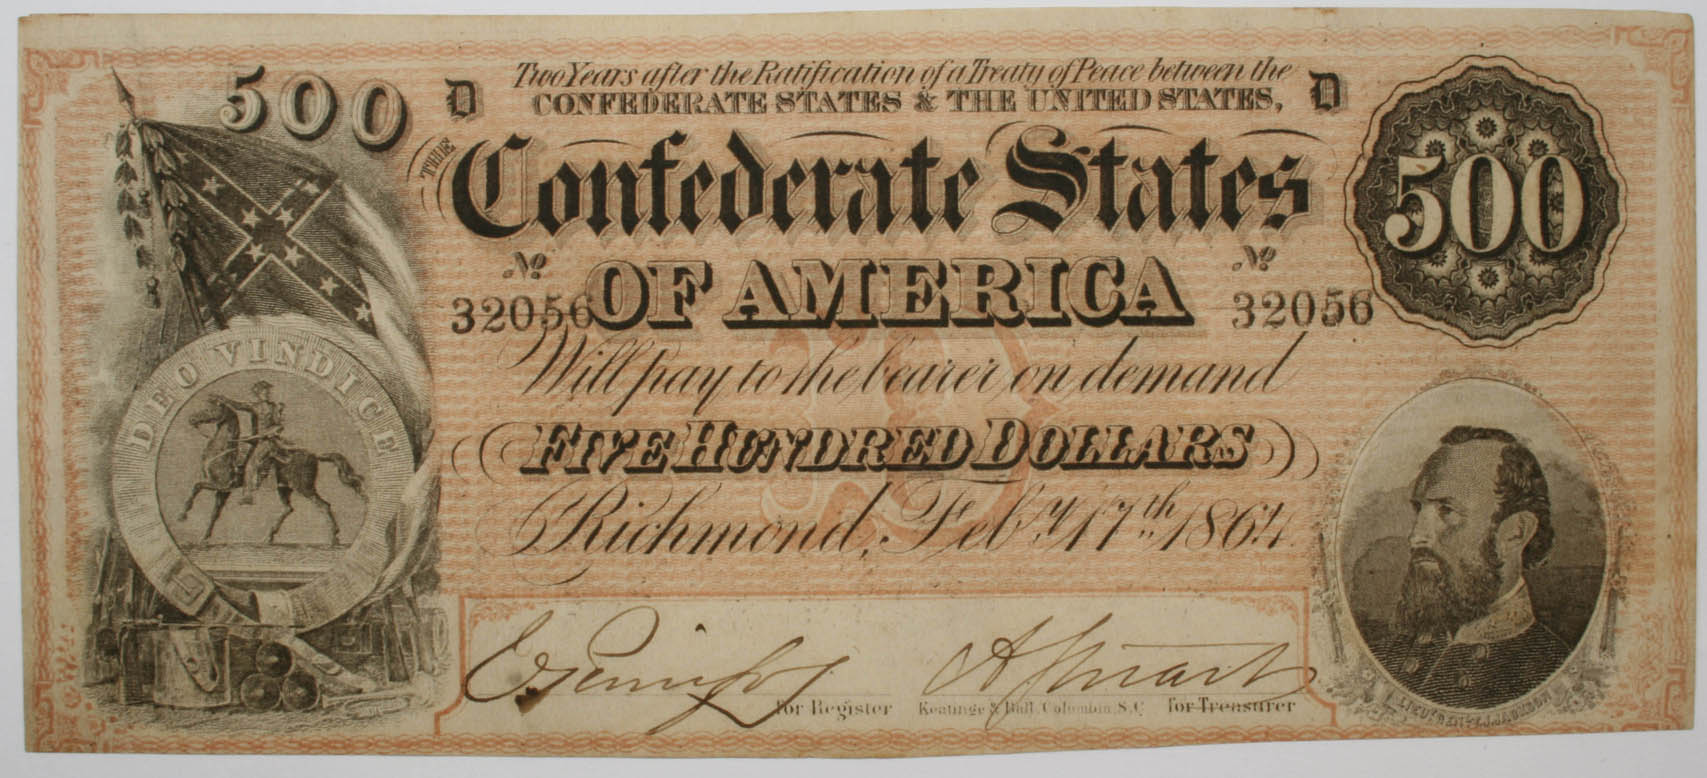 500
D
Two Years after the Ratification of a Treaty of Peace between the
D
CONFEDERATE STATES & THE UNITED STATES,
THE Confederate States
500
No No
32056 OF AMERICA 32056
Will pay to the bearer on demand
FIVE HUNDRED DOLLARS
Richmond, Feb.y 17th 1864.
DEO VINDICE
A Stuart
for Register Keatinge & Ball, Columbia, S.C. for Treasurer
LIEUT. GEN'L T.J. JACKSON